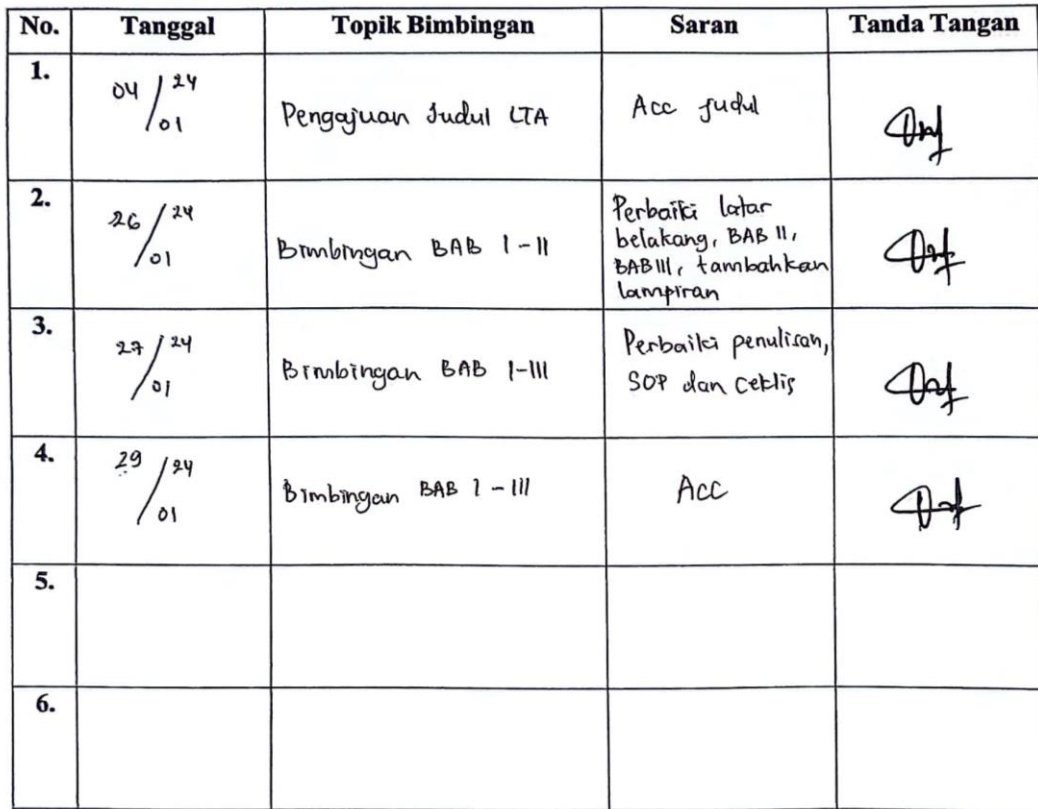 No. Tanggal Topik Bimbingan Saran Tanda Tangan
1. 04/01 24 Pengajuan Judul LTA Acc Judul
2. 26/01 24 Bimbingan BAB I-II Perbaiki latar
belakang, BAB II,
BAB III, tambahkan
lampiran
3. 27/01 24 Bimbingan BAB I-III Perbaiki penulisan,
SOP dan Ceklis
4. 29/01 24 Bimbingan BAB I-III Acc
5.
6.